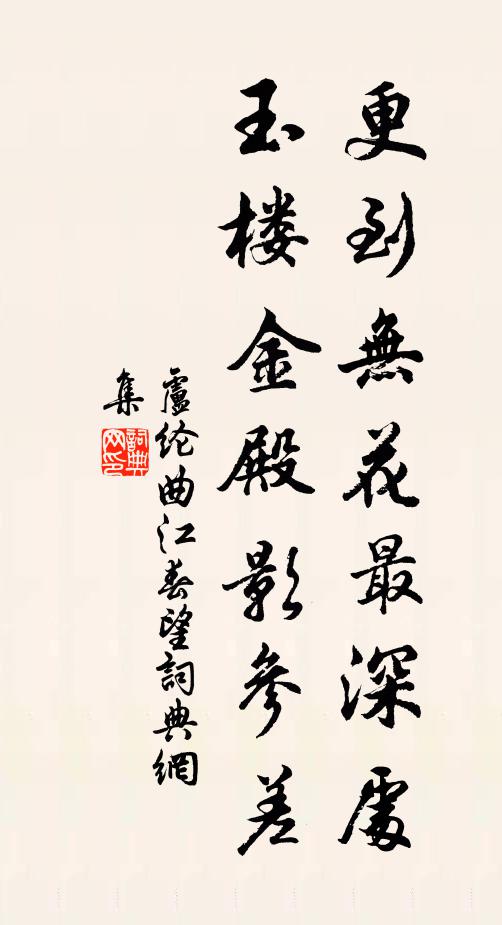 更到無花最深處
玉楼金殿影參差
盧纶曲江春望詞典網
集
詞典
网印